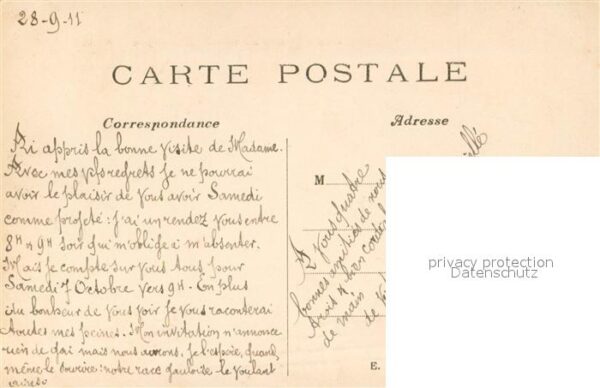 28-9-11
CARTE POSTALE
Correspondance
Adresse
Ai appris la bonne visite de Madame.
Avec mes pls regrets je ne pourrai
avoir le plaisir de vous avoir Samedi
comme projeté : j'ai un rendez vous entre
8H et 9H soir qui m'oblige à m'absenter.
Mais je compte sur vous tous pour
Samedi 7 Octobre vers 9H. En plus
du bonheur de vous voir je vous raconterai
toutes mes peines. Mon invitation n'annonce
rien de gai mais nous aurons, je l'espère, quand
même le sourire : notre race gauloise le voulant
M
A vous quatre
bonnes amitiés de nous
trois & bien cordiale
de main
de
E.
privacy protection
Datenschutz